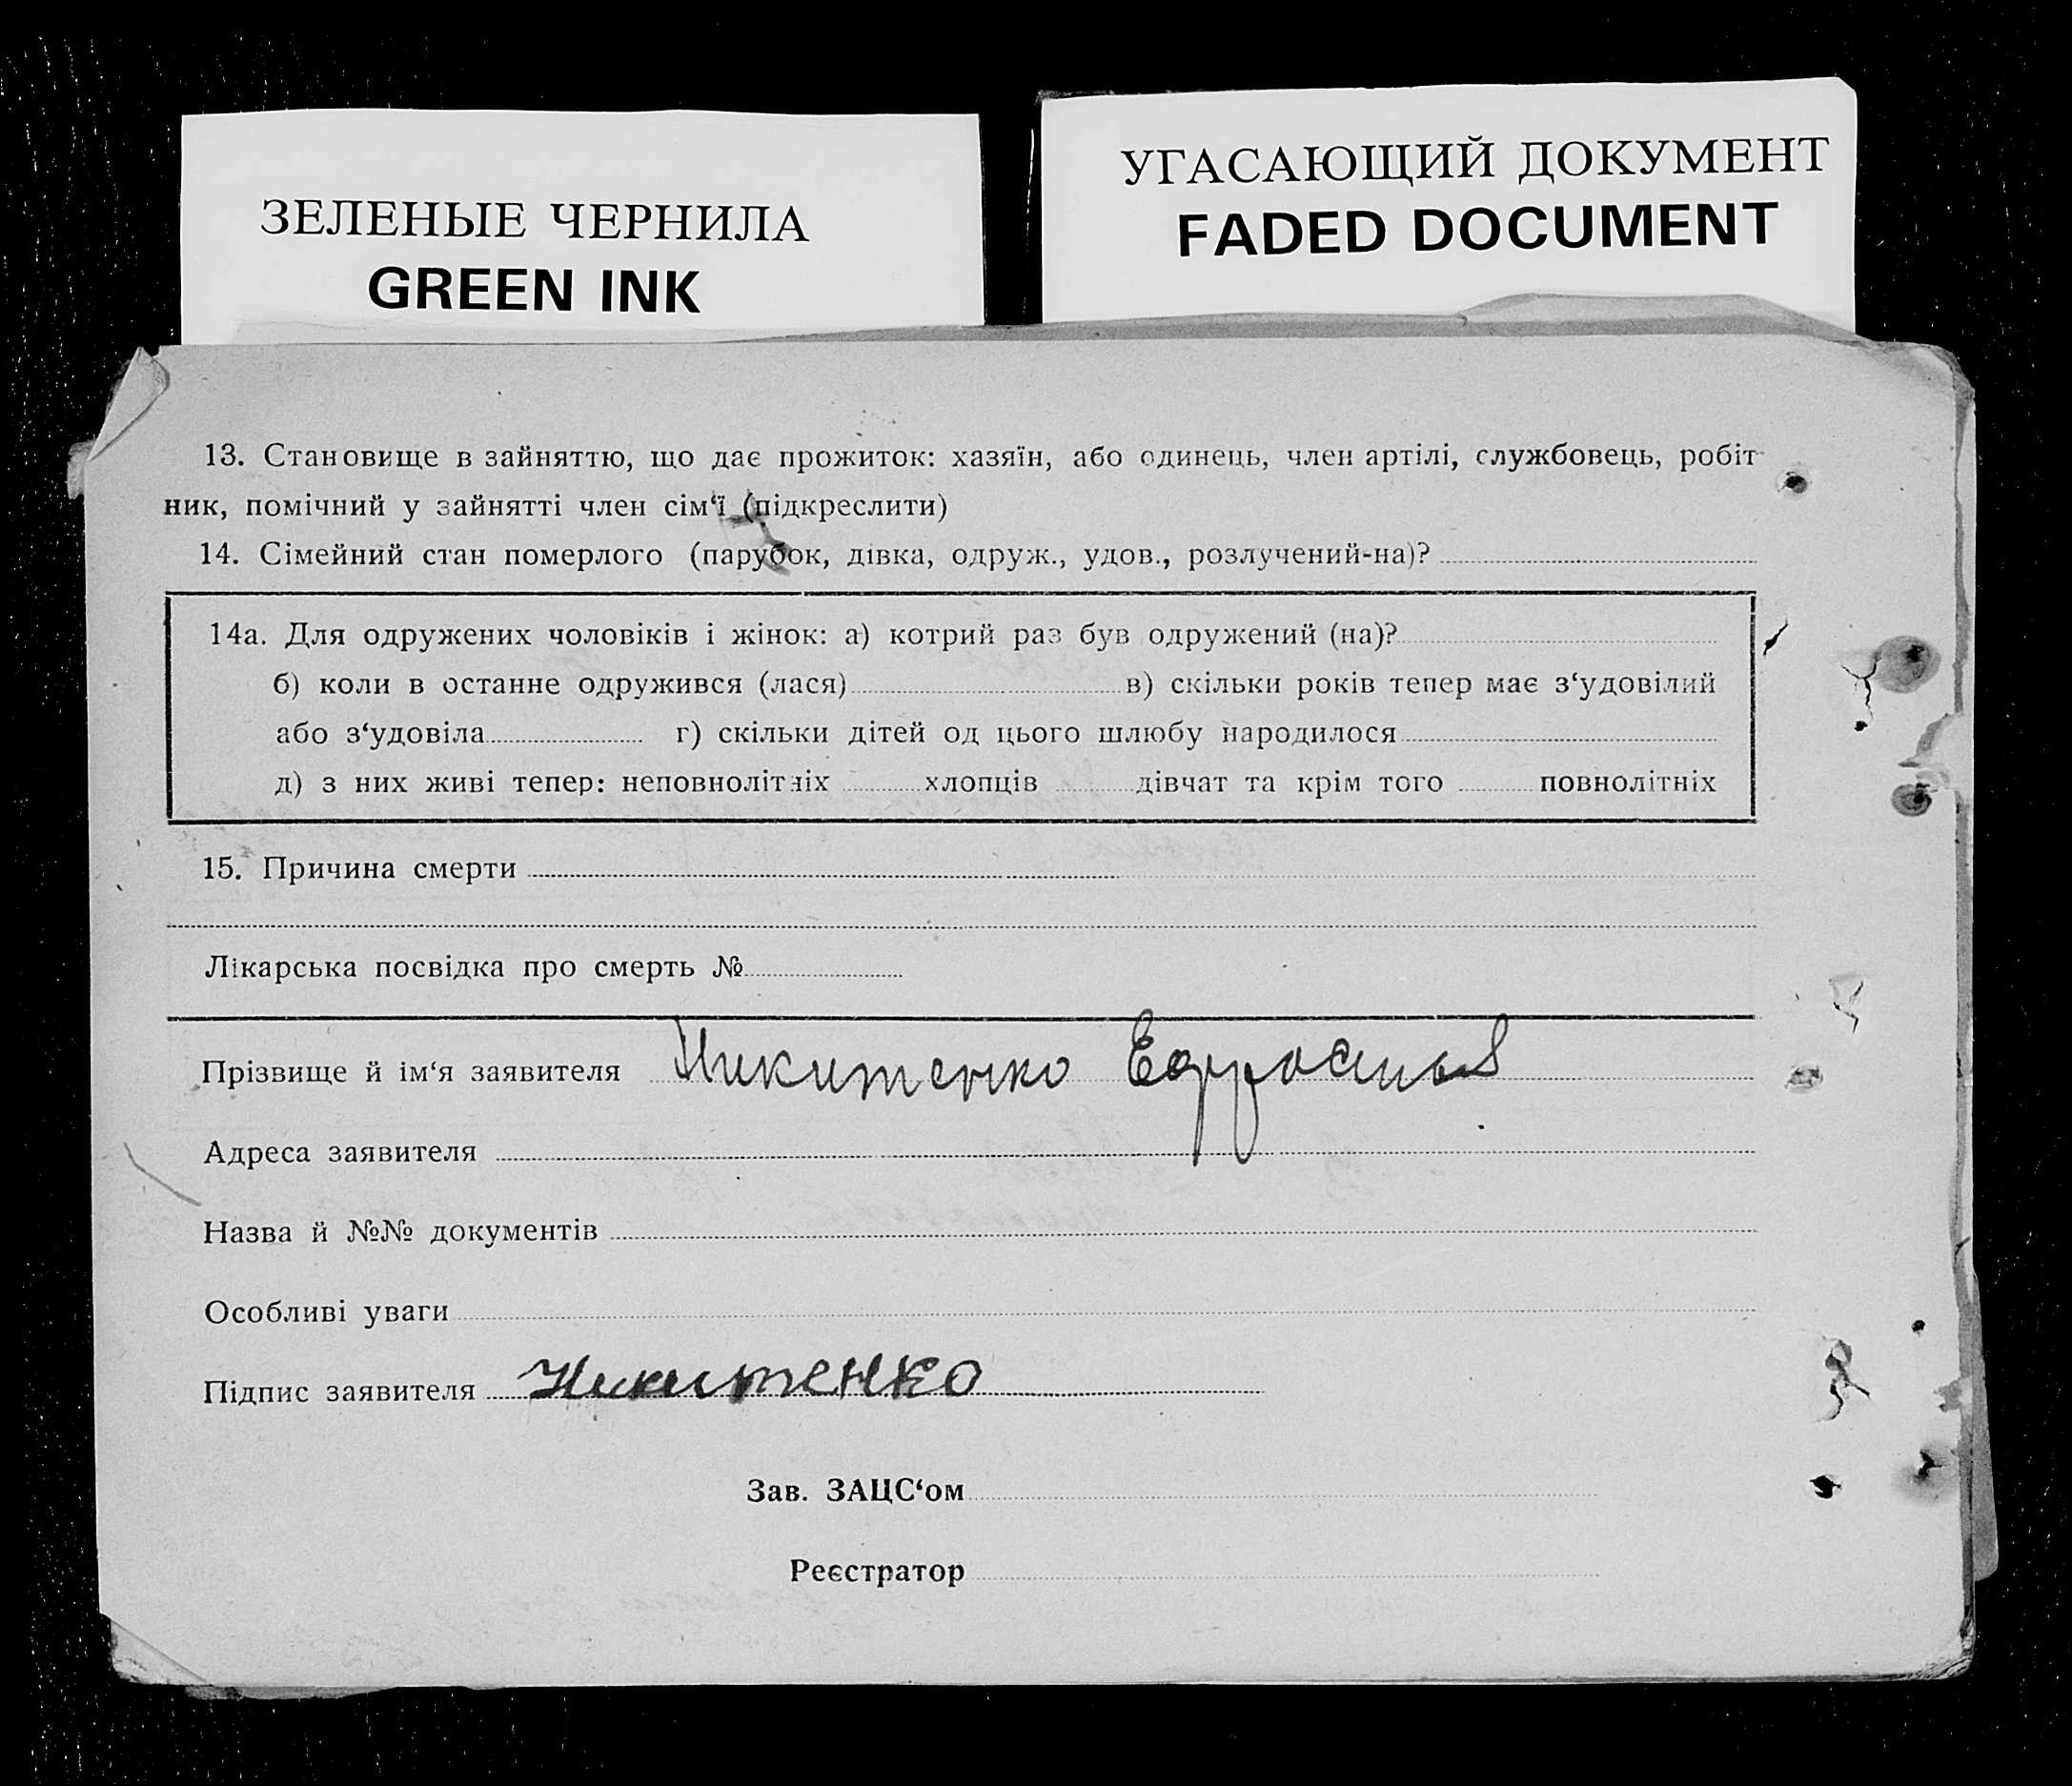 ЗЕЛЕНЫЕ ЧЕРНИЛА
GREEN INK
УГАСАЮЩИЙ ДОКУМЕНТ
FADED DOCUMENT
13. Становище в зайняттю, що дає прожиток: хазяїн, або одинець, член артілі, службовець, робіт-
ник, помічний у зайнятті член сім‘ї (підкреслити)
14. Сімейний стан померлого (парубок, дівка, одруж., удов., розлучений-на)?
14а. Для одружених чоловіків і жінок: а) котрий раз був одружений (на)?
б) коли в останне одружився (лася) в) скільки років тепер має з‘удовілий
або з‘удовіла г) скільки дітей од цього шлюбу народилося
д) з них живі тепер: неповнолітніх хлопців дівчат та крім того повнолітніх
15. Причина смерти
Лікарська посвідка про смерть №
Прізвище й ім‘я заявителя Никитенко Ефросинья
Адреса заявителя
Назва й №№ документів
Особливі уваги
Підпис заявителя Никитенко
Зав. ЗАЦС‘ом
Реєстратор